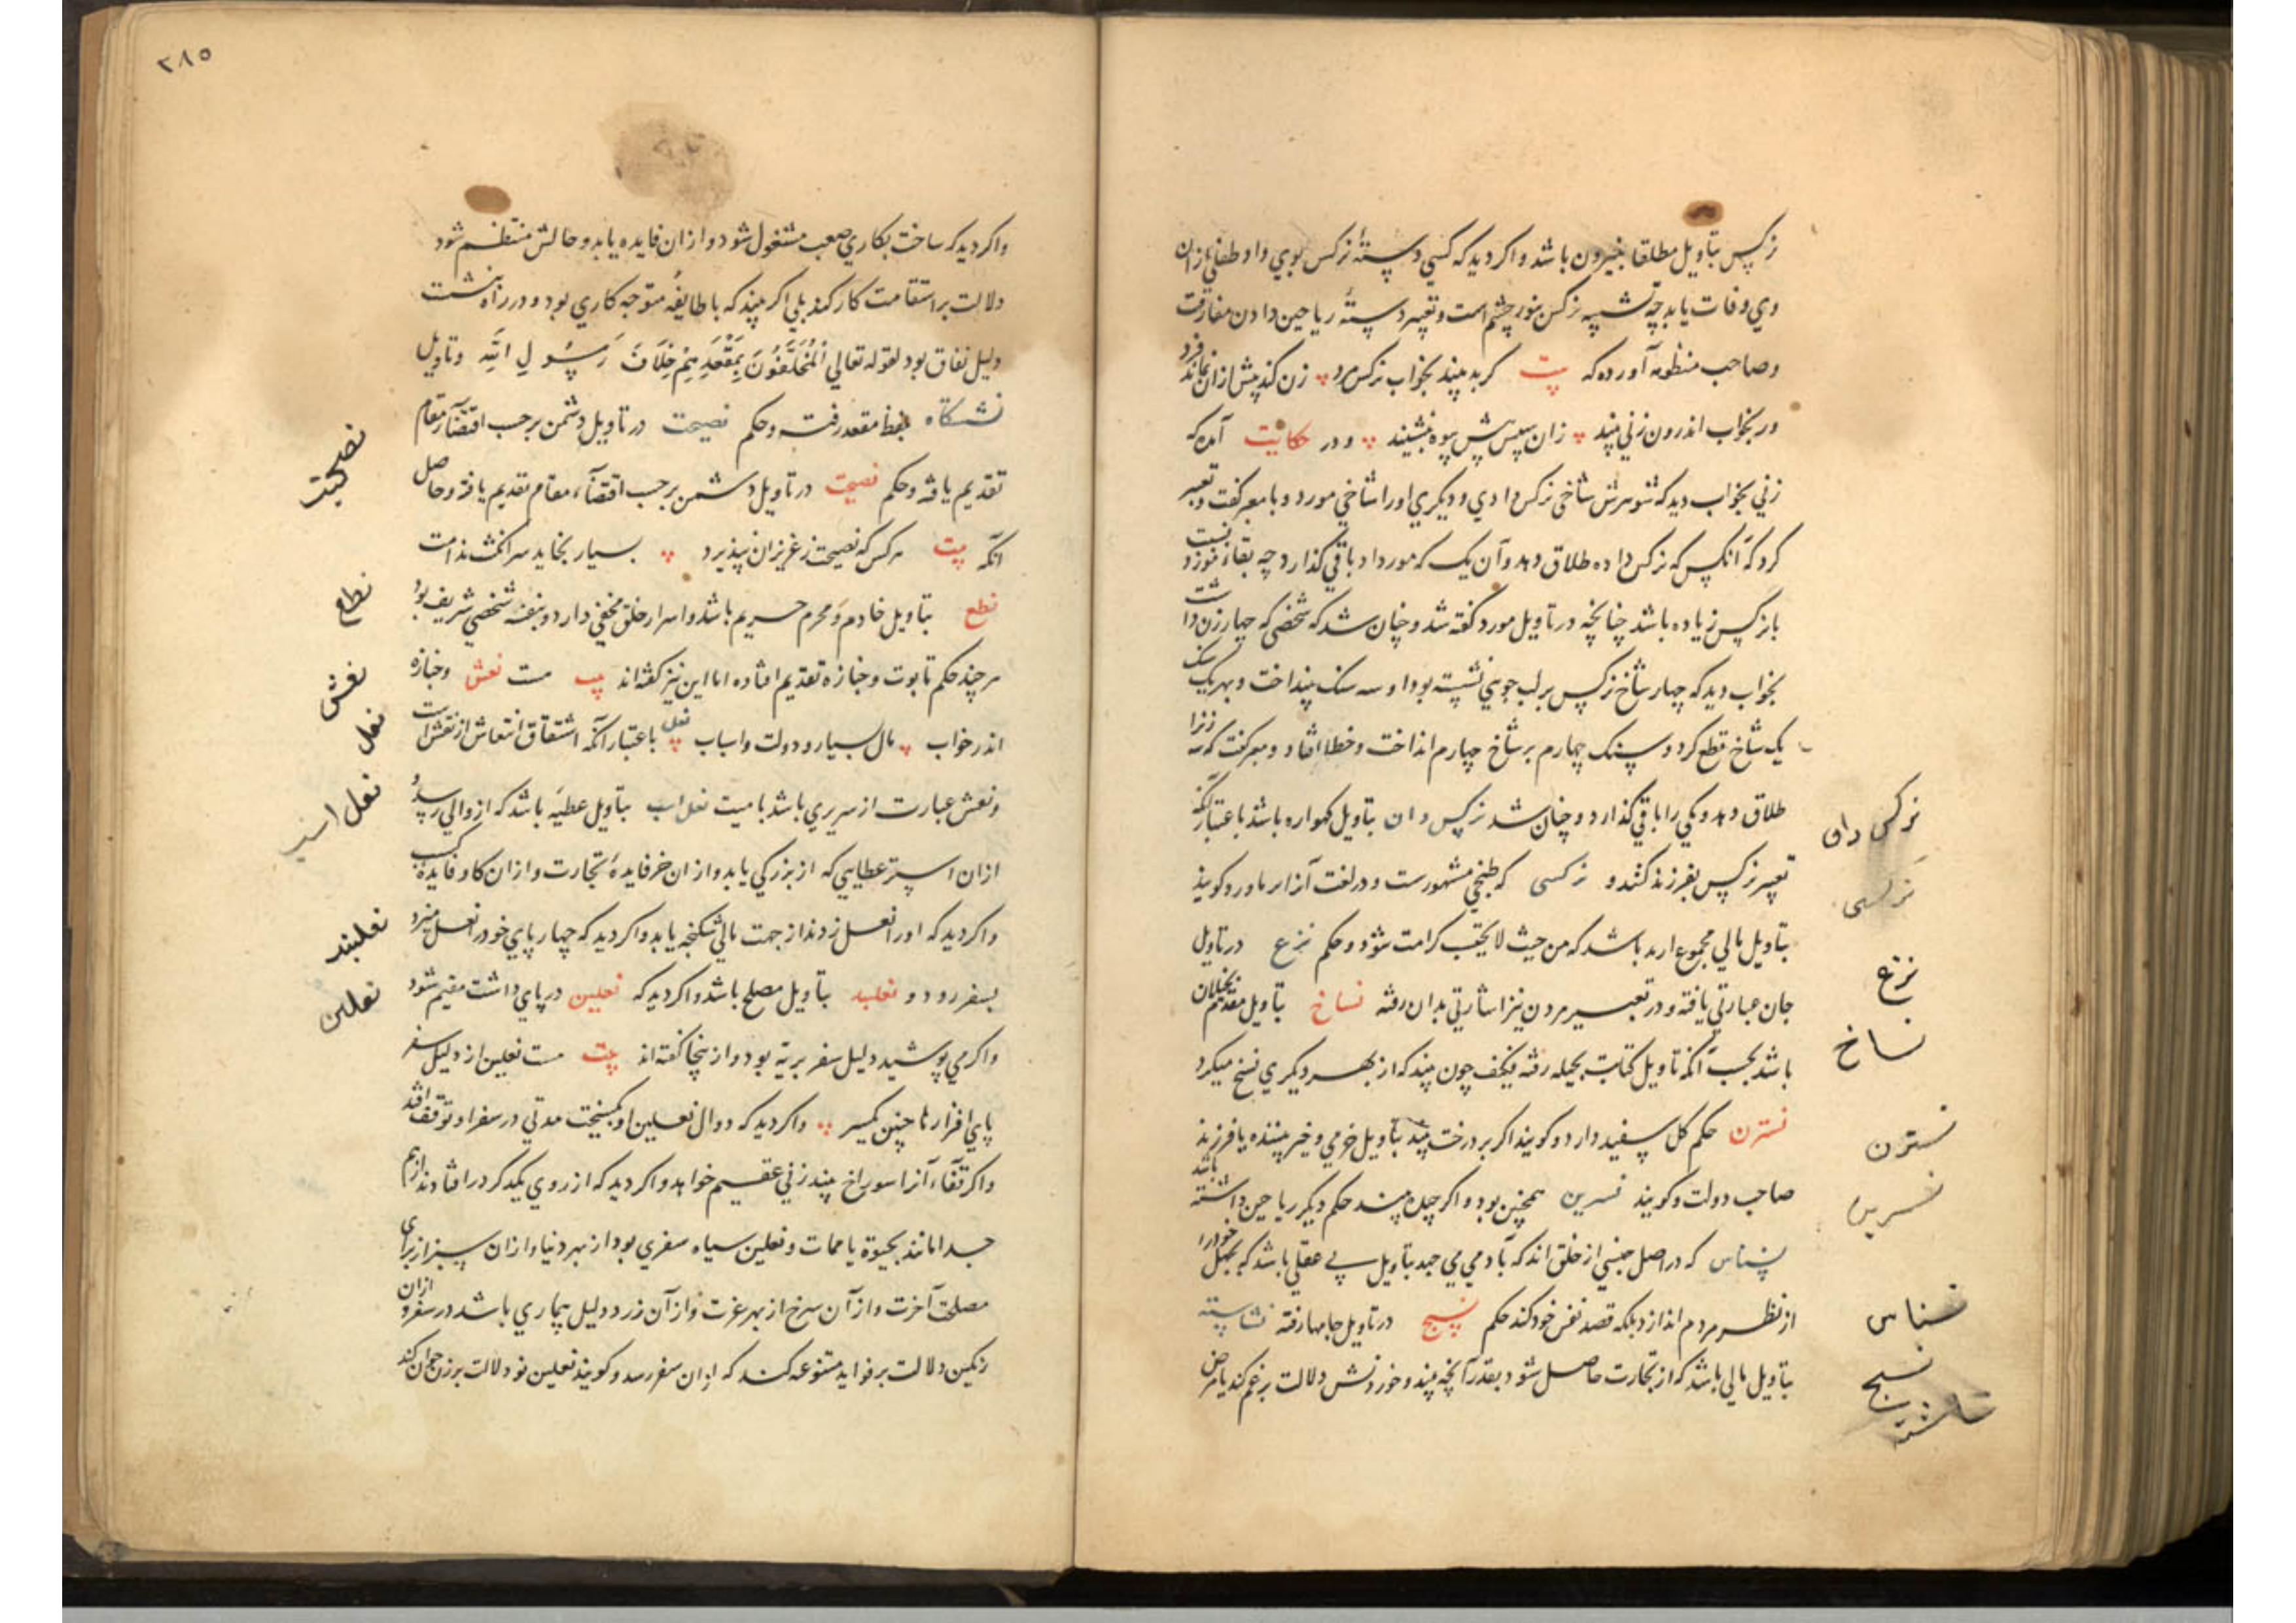 نرکس بتاویل مطلقا باشد واکر دید که کسی دستهٔ نرکس بوی داد طفلی ازان
وی وفات یابد چه تشبیه نرکس بنور چشم است وتعبیر دستهٔ ریاحین دادن مفارقت
وصاحب منظومه آورده که بیت کر به بیند بخواب نرکس مرد زن کند پیش ازان نماند فرد
ور بخواب اندرون زنی بیند زان سپس بیوه بنشیند ودر حکایت آمده که
زنی بخواب دید که شوهرش شاخی نرکس دادی ودیکری اورا شاخی مورد وبا معبر کفت وتعبیر
کرد که آنکس که نرکس داده طلاق دهد وآن یک که مورد داد باقی کذارد چه بقاء مورد نسبت
با نرکس زیاده باشد چنانچه در تاویل مورد کفته شد وچنان شد که شخصی که چهار زن داشت
بخواب دید که چهار شاخ نرکس بر لب جویی نشسته بود او سه سنک بینداخت وبهر یک سنک
یک شاخ قطع کرد وسنک چهارم بر شاخ چهارم انداخت وخطا افتاد ومعبر کفت که سه زنرا
طلاق دهد ویکی را باقی کذارد وچنان شد نرکس دان بتاویل کهواره باشد باعتبار آنکه
تعبیر نرکس بفرزند کنند و نرکسی که طبخی مشهورست ودر لغت آنرا کویند
بتاویل مالی مجموع باشد که من حیث لا یحتسب کرامت شود وحکم نزع در تاویل
جان عبارتی یافته ودر تعبیر مردن نیز اشارتی بدان رفته نساخ بتاویل مقدم بخیلان
باشد بحسب آنکه تاویل کتابت بحیله رفته فکیف چون بیند که از بهر دیکری نسخ میکرد
نسترن حکم کل سفید دارد وکویند اکر بر درخت بیند بتاویل خرمی وخیر بیننده یا فرزند
صاحب دولت وکویند نسرین همچنین بود واکر چیده بیند حکم دیکر ریاحین داشته باشد
نسناس که در اصل جنسی از خلق اند که بآدمی می بتاویل بی عقلی باشد که بجهل خودرا
از نظر مردم اندازد بلکه قصد نفس خود کند حکم نسج در تاویل جامها رفته نشاسته
بتاویل مالی باشد که از تجارت حاصل شود بقدر آنچه بیند وخوردنش دلالت بر غم کند یا مرض
نرکس دان
نرکسی
نزع
نساخ
نسترن
نسرین
نسناس
نسج
نشاسته
٣٨٥
واکر دید که ساخت بکاری صعب مشغول شود وازان فایده یابد وحالش منتظم شود
دلالت بر استقامت کار کند بلی اکر بیند که با طایفهٔ متوجه کاری بود ودر راه بنشست
دلیل نفاق بود لقوله تعالی اَلْمُخَلَّفُونَ بِمَقْعَدِهِمْ خِلَافَ رَسُولِ اللَّهِ وتاویل
نشستکاه بلفظ مقعد رفت وحکم نصیحت در تاویل دشمن برحسب اقتضآء مقام
تقدیم یافته وحکم نصیحت در تاویل دشمن برحسب اقتضآء مقام تقدیم یافته وحاصل
آنکه بیت هرکس که نصیحت ز عزیزان نپذیرد بسیار بخاید سر انکشت ندامت
نطع بتاویل خادم ومحرم حریم باشد واسرار خلق مخفی دارد وبنفسه شخصی شریف بود
هرچند حکم تابوت وجنازه تقدیم افتاده اما این نیز کفته اند بیت هست نعش وجنازه
اندر خواب مال بسیار ودولت واسباب نعل باعتبار آنکه اشتقاق انتعاش از نعش است
ونعش عبارت از سریری باشد با میت نعل اسب بتاویل عطیه باشد که از والی رسد و
ازان استر عطایی که از بزرکی یابد وازان خر فایدهٔ تجارت وازان کاو فایده کسب
واکر دید که اورا نعل زدند از جهت مالی شکنجه یابد واکر دید که چهارپای خودرا نعل میزد
بسفر رود و نعلبند بتاویل مصلح باشد واکر دید که نعلین در پای داشت مقیم شود
واکر می پوشید دلیل سفر بریه بود وازینجا کفته اند بیت هست نعلین از دلیل سفر
پای افزارها چنین کمیسر واکر دید که دوال نعلین او بکسیخت مدتی در سفر او توقف افتد
واکر قفاء آنرا سوراخ بیند زنی عقیم خواهد واکر دید که از روی یکدکر در افتادند از هم
جدا مانند بحیوة یا ممات ونعلین سیاه سفری بود از بهر دنیا وازان سبز از برای
مصلحت آخرت وازآن سرخ از بهر عزت وازآن زرد دلیل بیماری باشد در سفر وازان
رنکین دلالت بر فواید متنوعه کند که ازان سفر رسد وکویند نعلین نو دلالت بر زن جوان کند
نصیحت
نطع
نعش
نعل
نعل اسب
نعلبند
نعلین